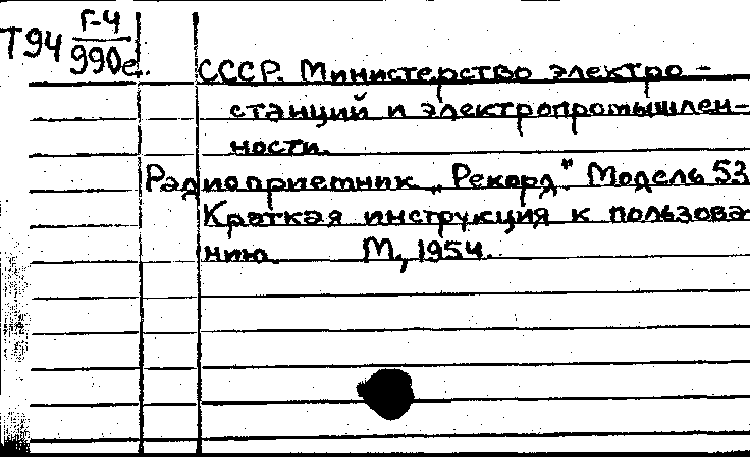 Т94 Г-4
990е.
СССР. Министерство электро-
станций и электропромышлен-
ности.
Радиоприемник „Рекорд". Модель 53
Краткая инструкция к пользова
нию. М., 1954.